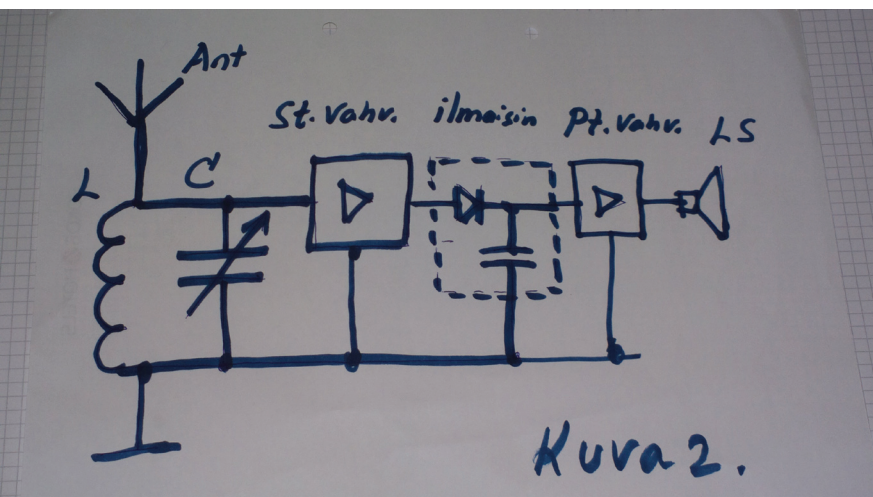 Ant
St. Vahv. ilmaisin Pt. Vahv. LS
L C
Kuva 2.